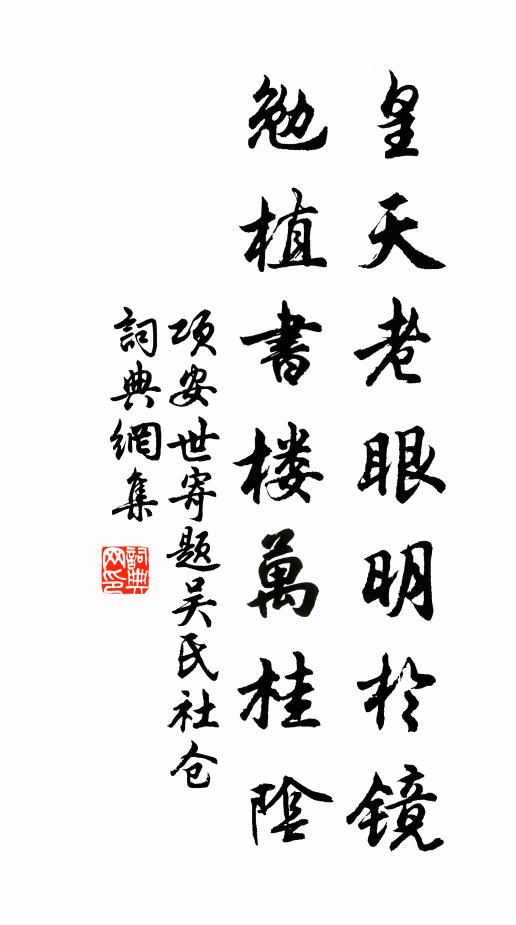 皇天老眼明於镜
勉植書楼萬桂陰
项安世寄题吴氏社仓
詞典網集
詞典网印